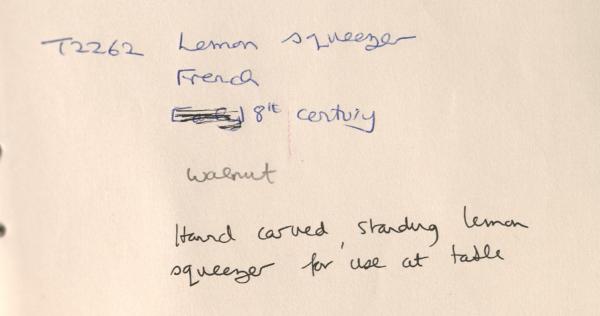 T2262 Lemon squeezer
French
18th century
walnut
Hand carved, standing lemon
squeezer for use at table